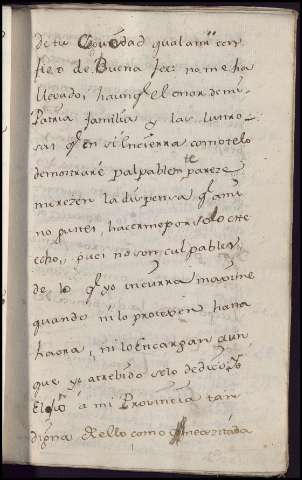 de tu Equidad qual ami con
fieo de Buena fee: no me ha
llevado, haunq.e el onor de mi
Patria familia y las lustro-
sas q.e en si Encierra como telo
demostraré palpablem.te pareze
merezen la dispensa q.e a mi
no gustes, hacerme por solo este
echo, pues no son culpables
de lo q.e yo incurra maxime
quando ni lo protexen hasta
haora, ni lo Encargan aun
que yo atrebido selo dedico
El a mi Provincia tan
digna de ello como necezitada